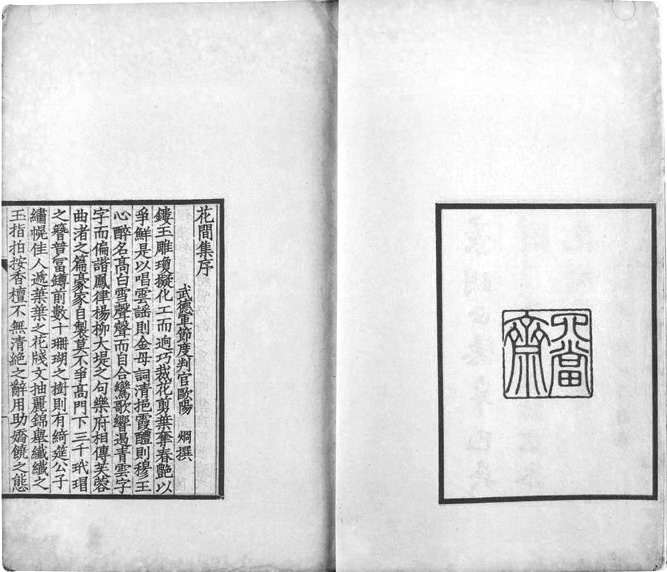 四當齋
花間集序
武德軍節度判官歐陽 烱撰
鏤玉雕瓊擬化工而逈巧裁花剪葉奪春艶以
爭鮮是以唱雲謠則金母詞清挹霞醴則穆王
心醉名髙白雪聲聲而自合鸞歌響遏青雲字
字而偏諧鳳律楊柳大堤之句樂府相傳芙蓉
曲渚之篇豪家自製莫不爭髙門下三千玳瑁
之簪富罇前數十珊瑚之樹則有綺筵公子
繡幌佳人遞葉葉之花牋文抽麗錦舉纖纖之
玉指拍按香檀不無清絶之辭用助嬌饒之態